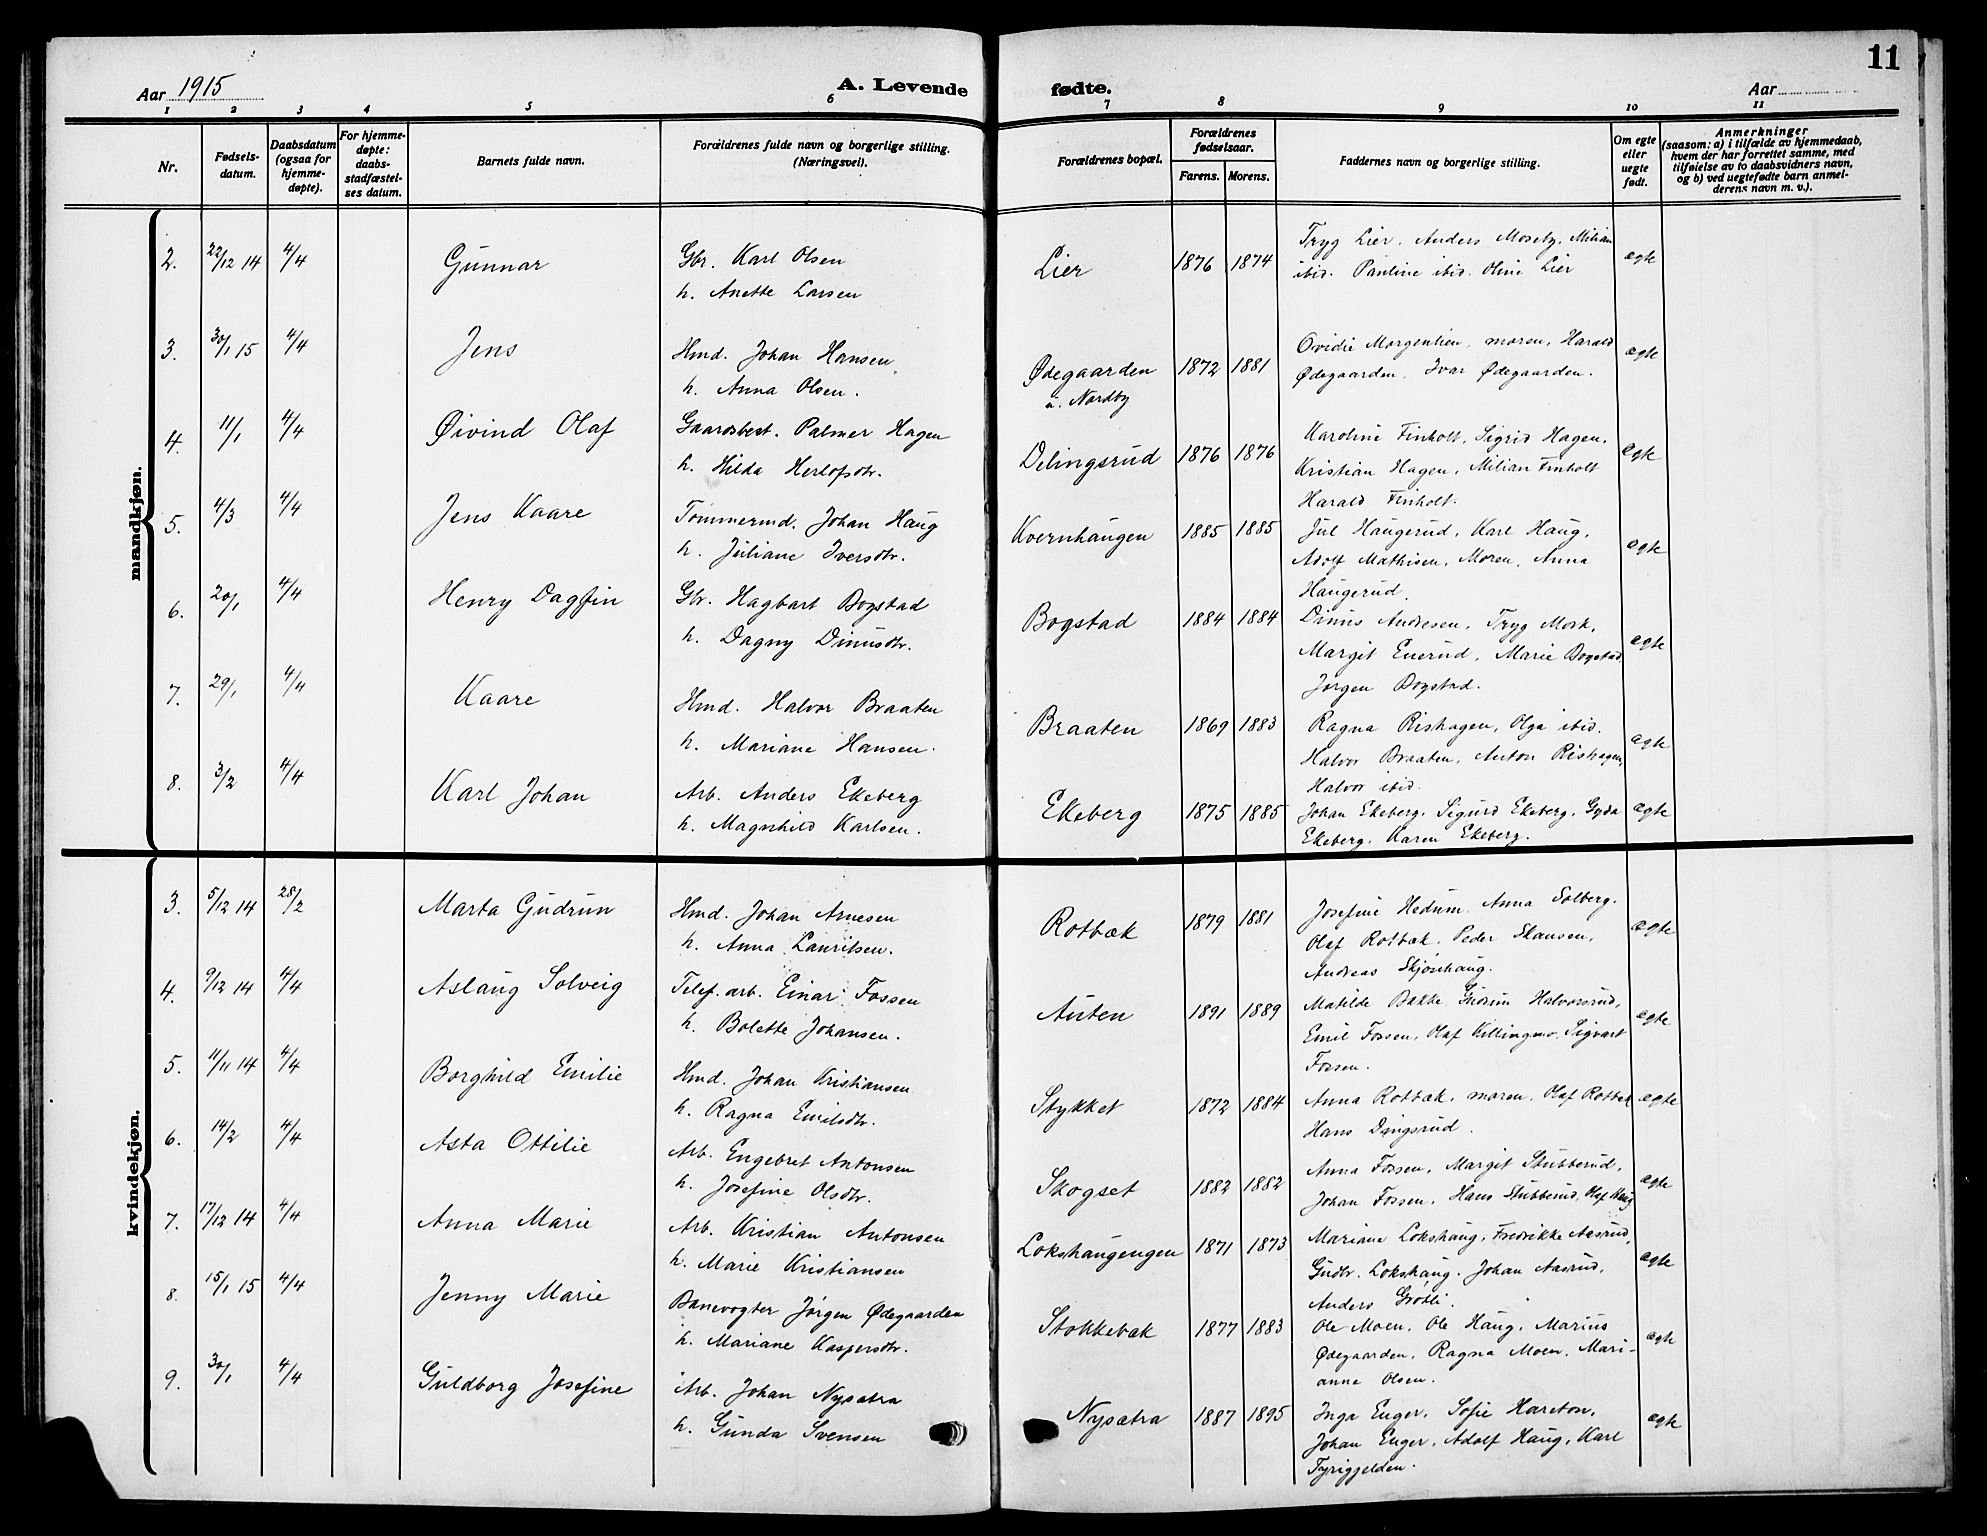 11
Aar 1915
A. Levende fødte.
Aar
1 2 3 4 5 6 7 8 9 10 11
Nr.
Fødsels-
datum.
Daabsdatum
(ogsaa for
hjemme-
døpte).
For hjemme-
døpte:
daabs-
stadfæstel-
ses datum.
Barnets fulde navn.
Forældrenes fulde navn og borgerlige stilling.
(Næringsvei).
Forældrenes bopæl.
Forældrenes
fødselsaar.
Farens. Morens.
Faddernes navn og borgerlige stilling.
Om egte
eller
uegte
født.
Anmerkninger
(saasom: a) i tilfælde av hjemmedaab,
hvem der har forrettet samme, med
tilføielse av to daabsvidners navn,
og b) ved uegtefødte barn anmel-
derens navn m. v.).
mandkjøn.
2. 22/12 14 4/4 Gunnar Gbr. Karl Olsen Lier 1876 1874 Tryg Lier. Anders Moseby. Milian egte
h. Anette Larsen ibid. Pauline ibid. Oline Lier
3. 30/1 15 4/4 Jens Hmd. Johan Hansen Ødegaarden 1872 1881 Ovidie Morgenlien, moren, Harald egte
h. Anna Olsen. u. Nordby Ødegaarden, Ivar Ødegaarden.
4. 11/1 4/4 Øivind Olaf Gaardsbest. Palmer Hagen Delingsrud 1876 1876 Karoline Finholt, Sigrid Hagen, egte
h. Hilda Herlofsdtr. Kristian Hagen, Milian Finholt
Harald Finholt.
5. 4/3 4/4 Jens Kaare Tømmermd. Johan Haug Kvernhaugen 1885 1885 Jul Haugerud, Karl Haug, egte
h. Juliane Iversdtr. Adolf Mathisen, Moren, Anna
Haugerud.
6. 20/1 4/4 Henry Dagfin Gbr. Hagbart Bogstad Bogstad 1884 1884 Dinus Andresen, Tryg Mork, egte
h. Dagny Dinusdtr. Margit Enerud, Marie Bogstad
Jørgen Bogstad.
7. 29/1 4/4 Kaare Hmd. Halvor Braaten Braaten 1869 1883 Ragna Rishagen, Olga ibid. egte
h. Mariane Hansen. Halvor Braaten, Anton Rishagen,
Halvor ibid.
8. 3/2 4/4 Karl Johan Arb. Anders Ekeberg Ekeberg 1875 1885 Johan Ekeberg, Sigurd Ekeberg, Gyda egte
h. Magnhild Karlsen. Ekeberg, Karen Ekeberg.
kvindekjøn.
3. 5/12 14 28/2 Marta Gudrun Hmd. Johan Arnesen Rotbæk 1879 1881 Josefine Hedum, Anna Solberg. egte
h. Anna Lauritsen. Olaf Rotbæk, Peder Skansen,
Andreas Skjønhaug.
4. 9/12 14 4/4 Aslaug Solveig Telef. arb. Einar Fossen Auten 1891 1889 Matilde Bakke, Gudrun Halvorsrud, egte
h. Bolette Johansen. Emil Fossen, Olaf Killingmo, Sigvart
Fossen.
5. 11/11 14 4/4 Borghild Emilie Hmd. Johan Kristiansen Stykket 1872 1884 Anna Rotbæk, moren, Olaf Rotbæk egte
h. Ragna Emilsdtr. Hans Dingsrud.
6. 14/2 4/4 Asta Ottilie Arb. Engebret Antonsen Skogset 1882 1882 Anna Fossen, Margit Stubberud, egte
h. Josefine Olsdtr. Johan Fossen, Hans Stubberud, Olaf Haug
7. 17/12 14 4/4 Anna Marie Arb. Kristian Antonsen Lokshaugengen 1871 1873 Mariane Lokshaug, Fredrikke Aasrud, egte
h. Marie Kristiansen Gudbr. Lokshaug. Johan Aasrud,
Anders Grøtli.
8. 15/1 15 4/4 Jenny Marie Banevogter Jørgen Ødegaarden Stokkebæk 1877 1883 Ole Moen, Ole Haug, Marius egte
h. Mariane Kaspersdtr. Ødegaarden, Ragna Moen, Mari-
anne Olsen.
9. 30/1 4/4 Guldborg Josefine Arb. Johan Nysætra Nysætra 1887 1895 Inga Enger, Sofie Hareton, egte
h. Gunda Svensen Johan Enger, Adolf Haug, Karl
Tyrigjelden.